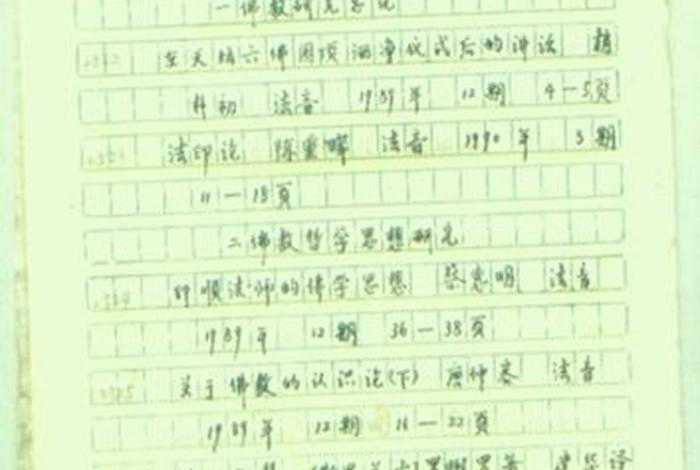 一佛教研究总论
在天坛大佛圆顶洒净仪式后的讲话 赵
朴初 法音 1989年 12期 4—5页
法印论 陈重晖 法音 1990年 3期
11—18页
二佛教哲学思想研究
印顺法师的佛学思想 蔡惠明 法音
1989年 12期 36—38页
关于佛教的认识论(下) 唐仲容 法音
1989年 12期 16—22页